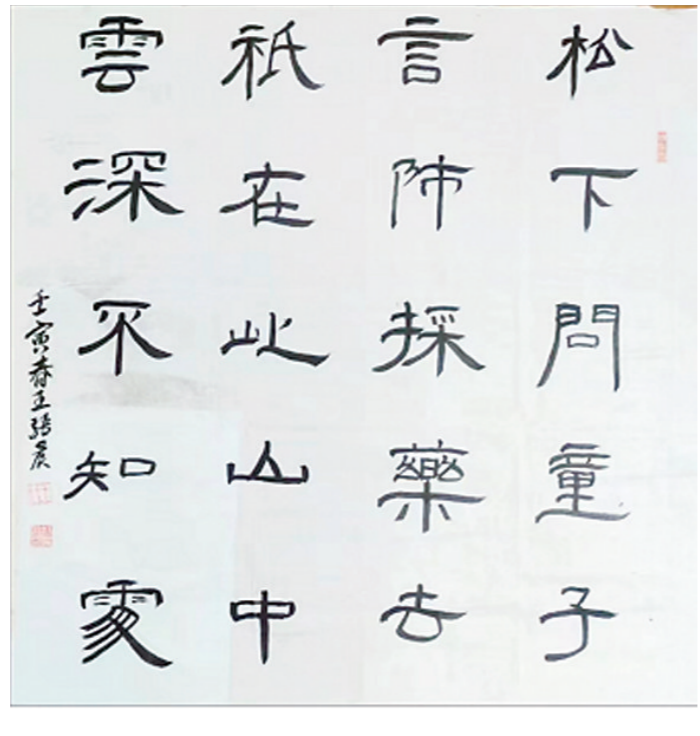 松下問童子
言師採藥去
祇在此山中
雲深不知處
壬寅春王